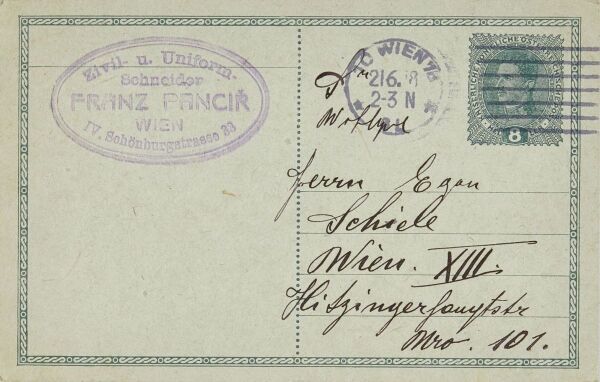 Zivil- u. Uniform-
Schneider
FRANZ PANCIŘ
WIEN
IV. Schönburgstrasse 33
WIEN
216.
2-3 N
8
Herrn Egon
Schiele
Wien. XIII.
Hitzingerhauptstr
Nro. 101.